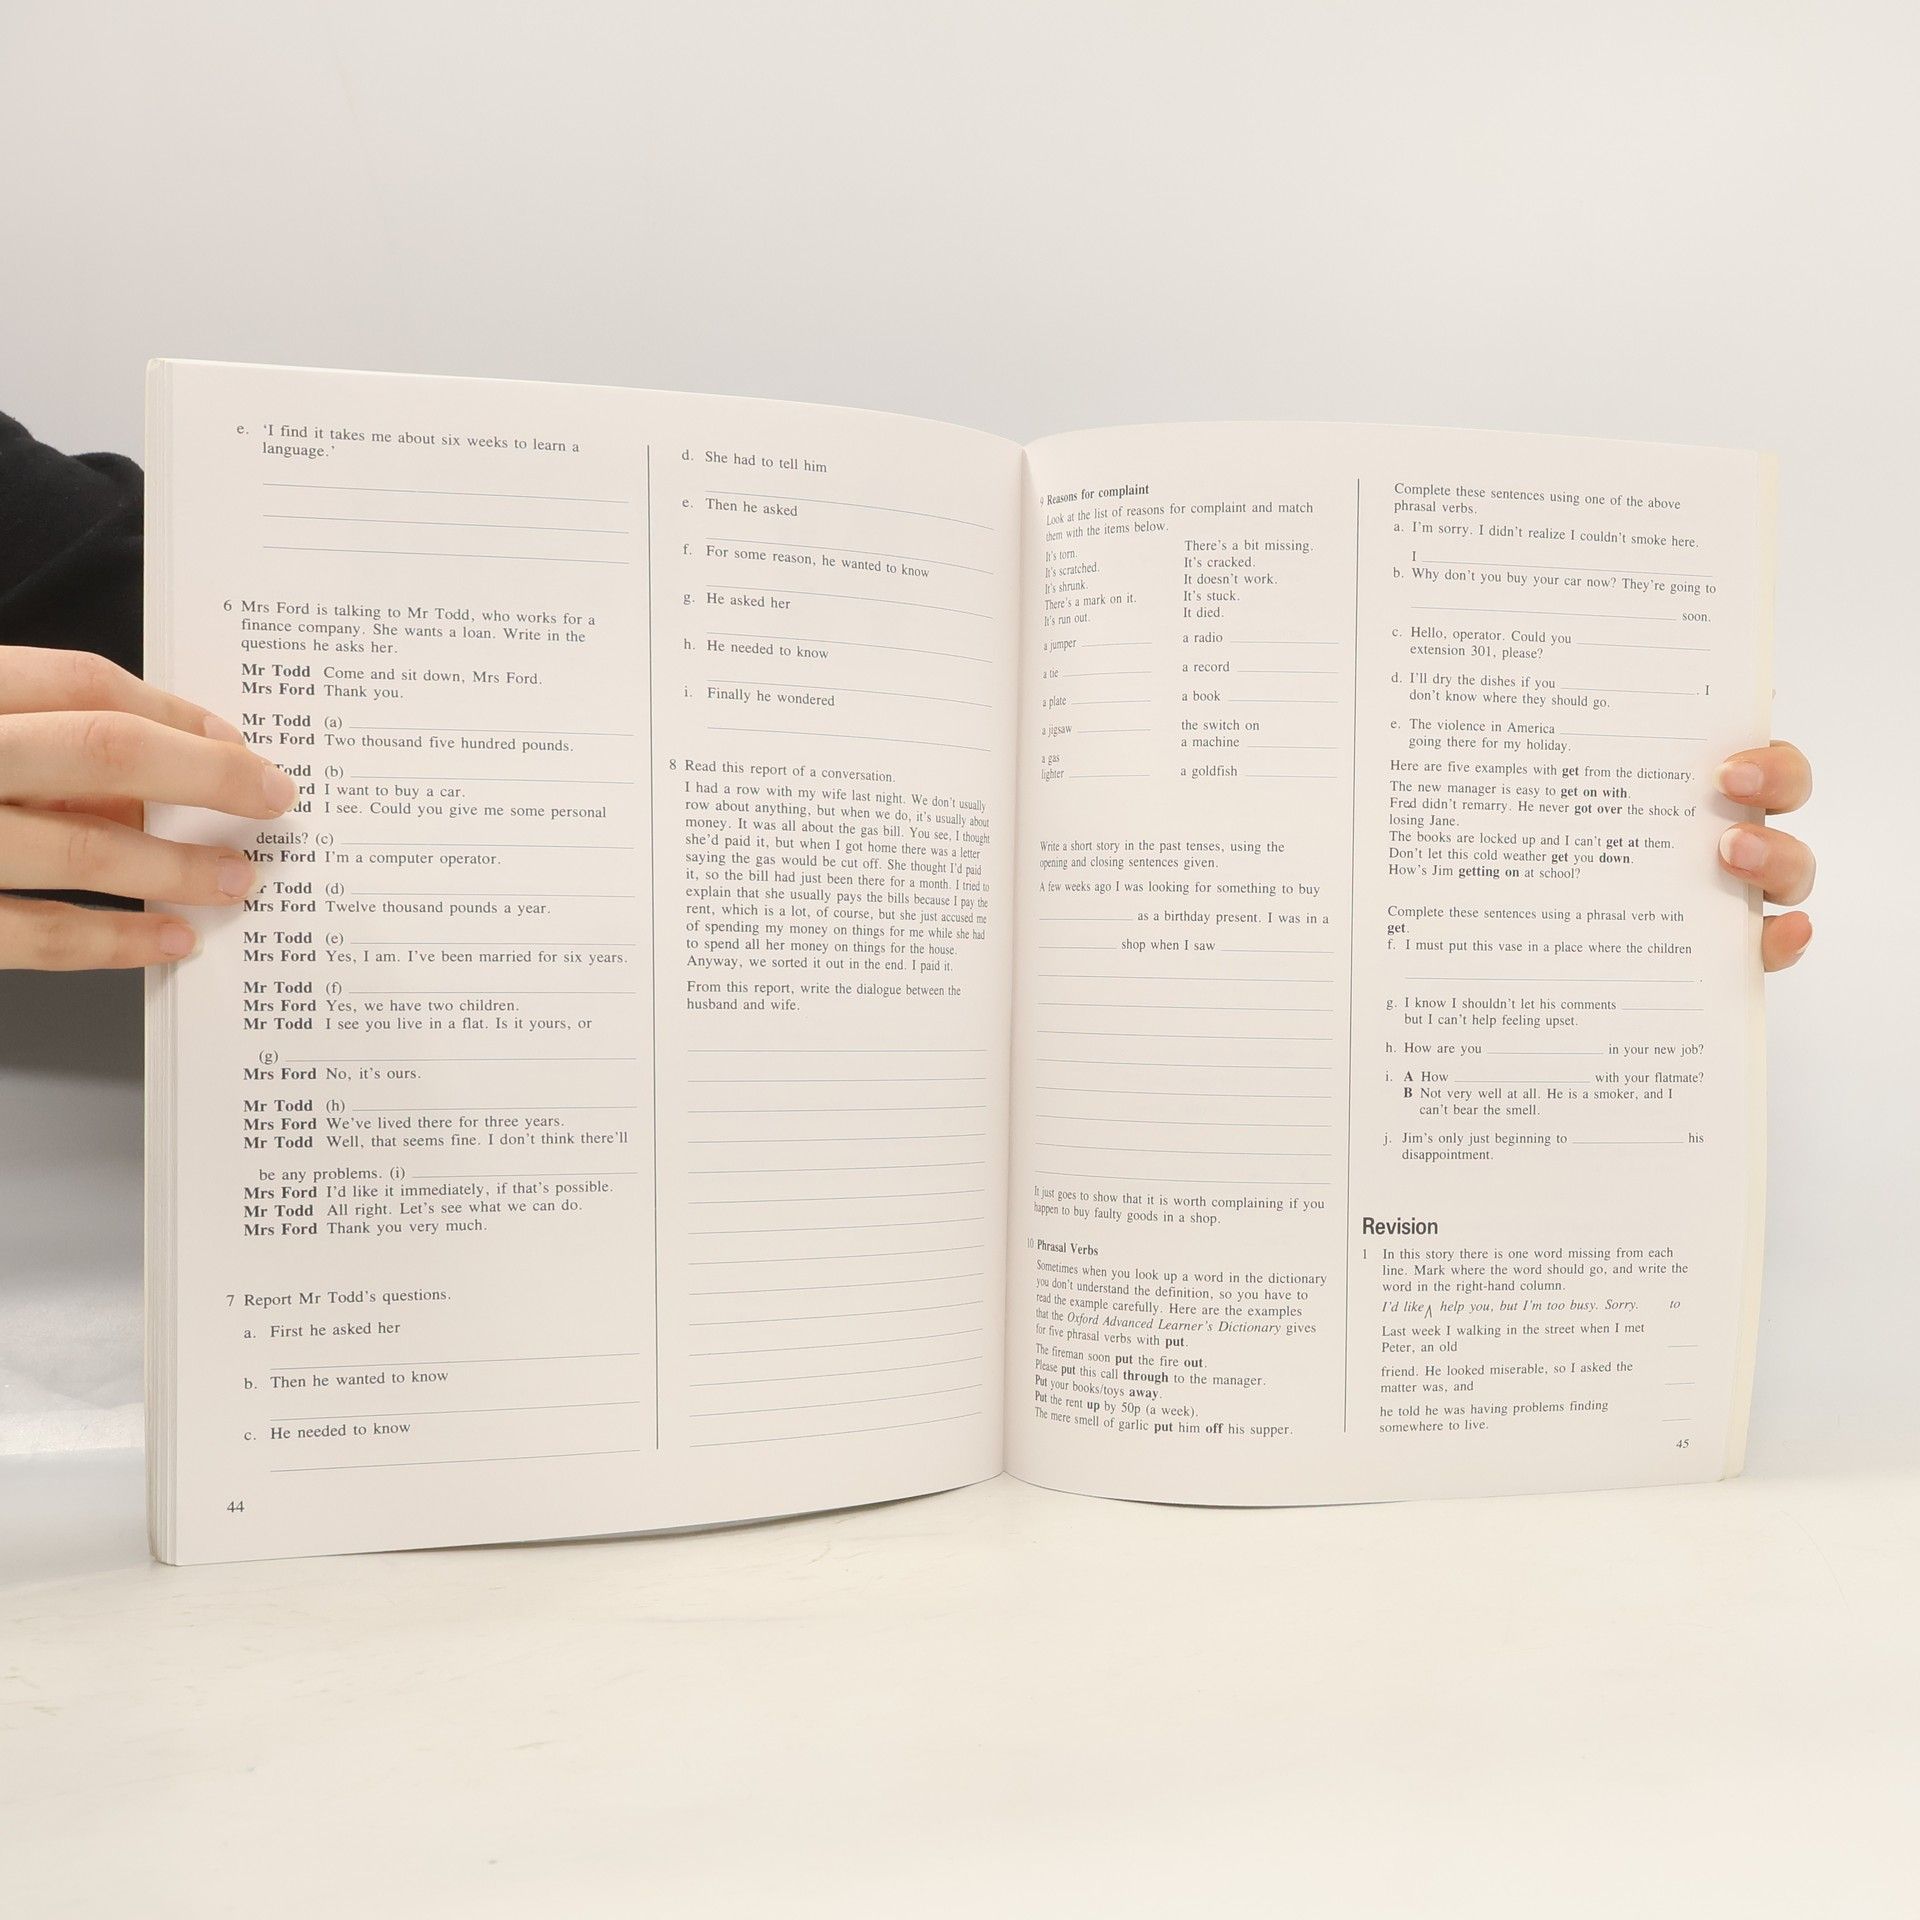 e. 'I find it takes me about six weeks to learn a
language.'
6 Mrs Ford is talking to Mr Todd, who works for a
finance company. She wants a loan. Write in the
questions he asks her.
Mr Todd Come and sit down, Mrs Ford.
Mrs Ford Thank you.
Mr Todd (a)
Mrs Ford Two thousand five hundred pounds.
odd (b)
rd I want to buy a car.
dd I see. Could you give me some personal
details? (c)
Mrs Ford I'm a computer operator.
r Todd (d)
Mrs Ford Twelve thousand pounds a year.
Mr Todd (e)
Mrs Ford Yes, I am. I've been married for six years.
Mr Todd (f)
Mrs Ford Yes, we have two children.
Mr Todd I see you live in a flat. Is it yours, or
(g)
Mrs Ford No, it's ours.
Mr Todd (h)
Mrs Ford We've lived there for three years.
Mr Todd Well, that seems fine. I don't think there'll
be any problems. (i)
Mrs Ford I'd like it immediately, if that's possible.
Mr Todd All right. Let's see what we can do.
Mrs Ford Thank you very much.
7 Report Mr Todd's questions.
a. First he asked her
b. Then he wanted to know
c. He needed to know
44
d. She had to tell him
e. Then he asked
f. For some reason, he wanted to know
g. He asked her
h. He needed to know
i. Finally he wondered
8 Read this report of a conversation.
I had a row with my wife last night. We don't usually
row about anything, but when we do, it's usually about
money. It was all about the gas bill. You see, I thought
she'd paid it, but when I got home there was a letter
saying the gas would be cut off. She thought I'd paid
it, so the bill had just been there for a month. I tried to
explain that she usually pays the bills because I pay the
rent, which is a lot, of course, but she just accused me
of spending my money on things for me while she had
to spend all her money on things for the house.
Anyway, we sorted it out in the end. I paid it.
From this report, write the dialogue between the
husband and wife.
9 Reasons for complaint
Look at the list of reasons for complaint and match
them with the items below.
It's torn. There's a bit missing.
It's scratched. It's cracked.
It's shrunk. It doesn't work.
There's a mark on it. It's stuck.
It's run out. It died.
a jumper a radio
a tie a record
a plate a book
a jigsaw the switch on
a machine
a gas
lighter a goldfish
Write a short story in the past tenses, using the
opening and closing sentences given.
A few weeks ago I was looking for something to buy
as a birthday present. I was in a
shop when I saw
It just goes to show that it is worth complaining if you
happen to buy faulty goods in a shop.
10 Phrasal Verbs
Sometimes when you look up a word in the dictionary
you don't understand the definition, so you have to
read the example carefully. Here are the examples
that the Oxford Advanced Learner's Dictionary gives
for five phrasal verbs with put.
The fireman soon put the fire out.
Please put this call through to the manager.
Put your books/toys away.
Put the rent up by 50p (a week).
The mere smell of garlic put him off his supper.
Complete these sentences using one of the above
phrasal verbs.
a. I'm sorry. I didn't realize I couldn't smoke here.
I
b. Why don't you buy your car now? They're going to
soon.
c. Hello, operator. Could you
extension 301, please?
d. I'll dry the dishes if you . I
don't know where they should go.
e. The violence in America
going there for my holiday.
Here are five examples with get from the dictionary.
The new manager is easy to get on with.
Fred didn't remarry. He never got over the shock of
losing Jane.
The books are locked up and I can't get at them.
Don't let this cold weather get you down.
How's Jim getting on at school?
Complete these sentences using a phrasal verb with
get.
f. I must put this vase in a place where the children
.
g. I know I shouldn't let his comments
but I can't help feeling upset.
h. How are you in your new job?
i. A How with your flatmate?
B Not very well at all. He is a smoker, and I
can't bear the smell.
j. Jim's only just beginning to his
disappointment.
Revision
1 In this story there is one word missing from each
line. Mark where the word should go, and write the
word in the right-hand column.
I'd like help you, but I'm too busy. Sorry. to
Last week I walking in the street when I met
Peter, an old
friend. He looked miserable, so I asked the
matter was, and
he told he was having problems finding
somewhere to live.
45